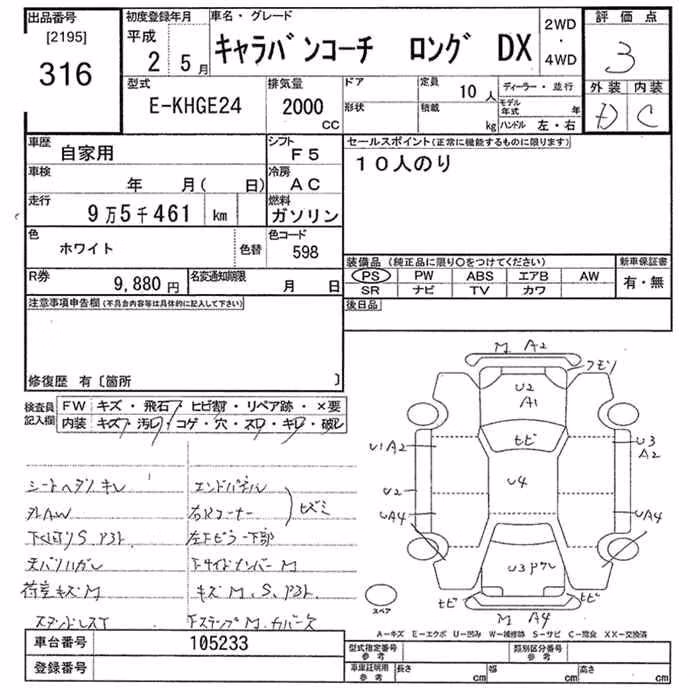 出品番号
[2195]
316
初度登録年月
平成
2 5月
車名・グレード
キャラバンコーチ ロング DX
2WD
・
4WD
評価点
3
外装 内装
D C
型式
E-KHGE24
排気量
2000
CC
ドア
形状
定員 10人
積載 kg
ディーラー・並行
モデル年式 年
ハンドル 左・右
車歴
自家用
シフト
F5
車検
年 月( 日)
冷房
AC
走行
9万5千461 km
燃料
ガソリン
色
ホワイト
色替
色コード
598
R券
9,880円
名変通知期限
月 日
セールスポイント(正常に機能するものに限ります)
10人のり
装備品(純正品に限り○をつけてください)
PS PW ABS エアB AW
SR ナビ TV カワ
新車保証書
有・無
後日品
注意事項申告欄(不具合内容等は具体的に記入して下さい)
修復歴 有〔箇所 〕
検査員
記入欄
FW キズ・飛石・ヒビ割・リペア跡・×要
内装 キズ・汚レ・コゲ・穴・スレ・キレ・破レ
シートヘタリ、キレ
外AW
下くぼりS、アト
天バリハガレ
荷室キズM
スタンドレスT
エンドパネル
右Rコーナー
ヒズミ
左下ピラー下部
下サイドメンバーM
キズM、S、アト
M A2
クモリ
U2
A1
ヒビ
U1 A2
U3
A2
U4
U2
UA4
UA4
U3 ワレ
ヒビ
ヒビ
M A4
スペア
A−キズ E−エクボ U−凹み W−補修跡 S−サビ C−腐食 XX−交換済
車台番号
105233
登録番号
型式指定番号
参考
類別区分番号
参考
車庫証明用
参考
長さ cm
幅 cm
高さ cm